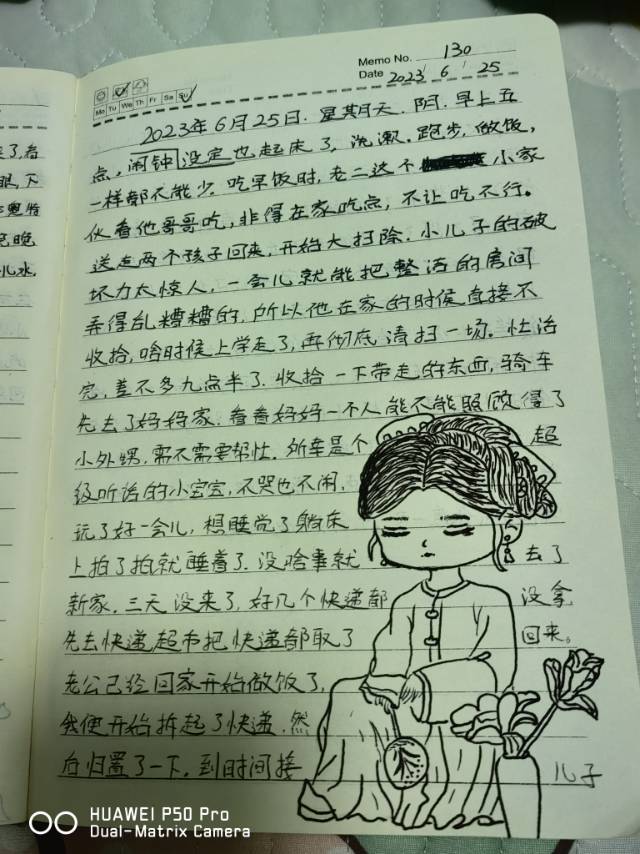 Memo No. 130
Mo Tu We Th Fr Sa Su
Date 2023 6 25
2023年6月25日.星期天.阴.早上五
点,闹钟没定也起床了,洗漱.跑步,做饭,
一样都不能少.吃早饭时,老二这个小家
伙看他哥哥吃,非得在家吃点,不让吃不行。
送走两个孩子回来,开始大扫除.小儿子的破
坏力太惊人,一会儿就能把整洁的房间
弄得乱糟糟的,所以他在家的时候直接不
收拾,啥时候上学走了,再彻底清扫一场。忙活
完,差不多九点半了.收拾一下带走的东西,骑车
先去了好好家.看看好好一个人能不能照顾得了
小外甥,需不需要帮忙.所幸是个超
级听话的小宝宝,不哭也不闹,
玩了好一会儿,想睡觉了躺床
上拍了拍就睡着了.没啥事就去了
新家.三天没来了,好几个快递都没拿
先去快递超市把快递都取了回来。
老公已经回家开始做饭了,
我便开始拆起了快递.然
后归置了一下.到时间接儿子
了.看
眼,下
晚
儿水,
HUAWEI P50 Pro
Dual-Matrix Camera